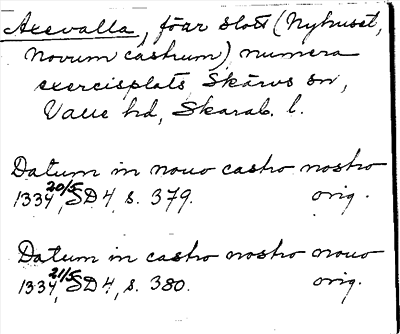 Axevalla, förr slott (Nyhuset,
Novum castrum) numera
exercisplats, Skärvs sn,
Valle hd, Skarab. l.
Datum in novo castro nostro
1334 20/5, SD 4, s. 379. orig.
Datum in castro nostro novo
1334 21/5, SD 4, s. 380. orig.